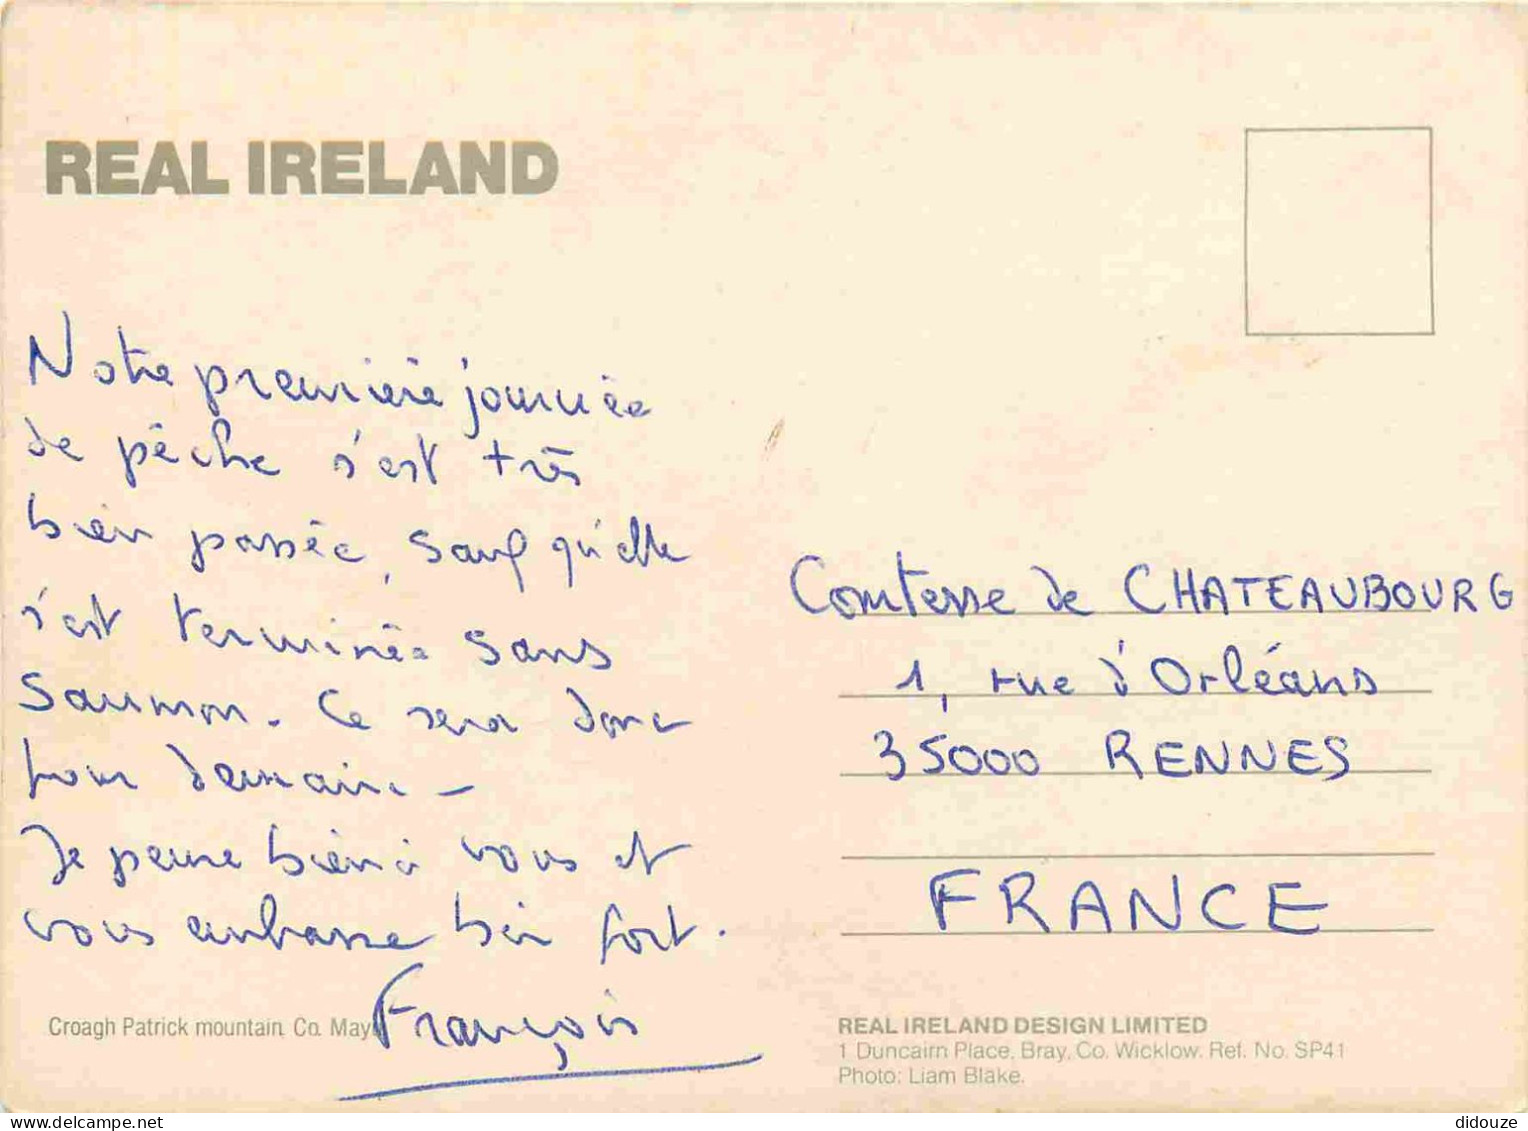 REAL IRELAND
Notre première journée
de pêche s'est très
bien passée, sauf qu'elle
s'est terminée sans
saumon. Ce sera donc
pour demain -
Je pense bien à vous et
vous embrasse bien fort.
François
Croagh Patrick mountain. Co. May
Comtesse de CHATEAUBOURG
1, rue d'Orléans
35000 RENNES
FRANCE
REAL IRELAND DESIGN LIMITED
1 Duncairn Place, Bray, Co. Wicklow. Ref. No. SP41
Photo: Liam Blake.
didouze